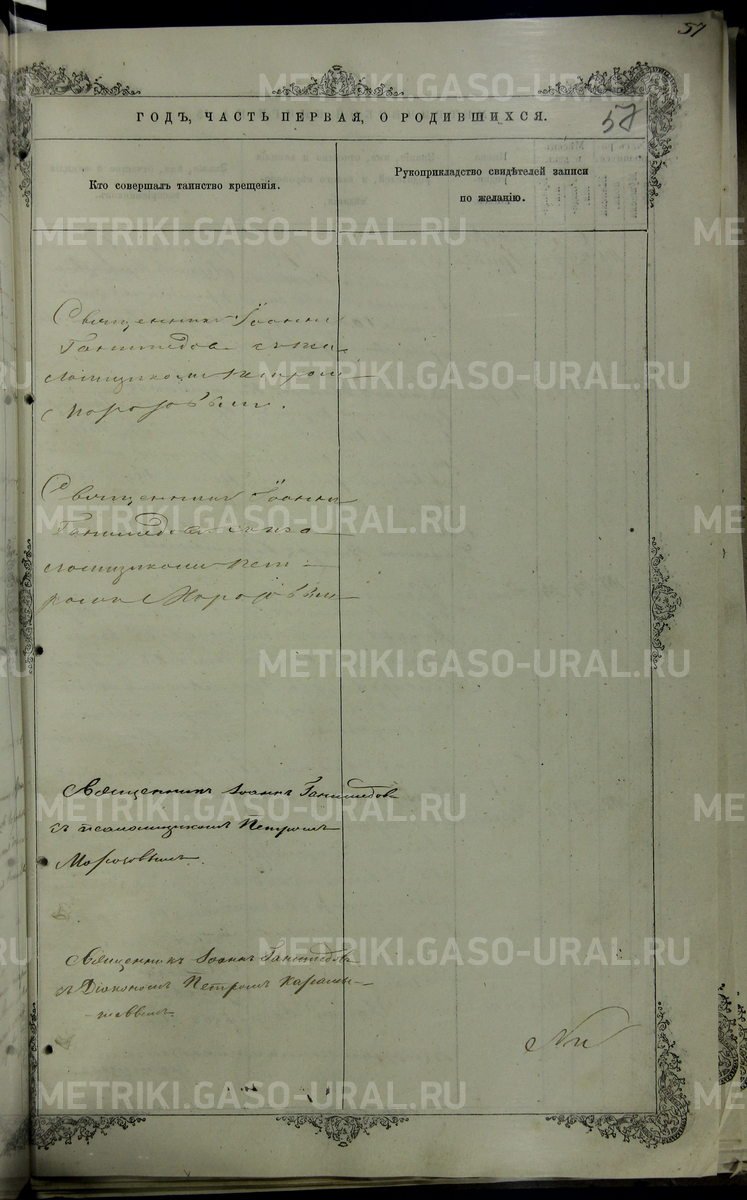 57
57
ГОДЪ, ЧАСТЬ ПЕРВАЯ, О РОДИВШИХСЯ.
Кто совершалъ таинство крещенія.
Рукоприкладство свидѣтелей записи
по желанію.
Священникъ Іоаннъ
съ пса
ломщикомъ Петромъ
Морозовымъ.
Священникъ Іоаннъ
съ пса
ломщикомъ Пет-
ромъ Морозовымъ
Священникъ Іоаннъ
съ псаломщикомъ Петромъ
Морозовымъ.
Священникъ Іоаннъ
съ Діакономъ Петромъ
METRIKI.GASO-URAL.RU